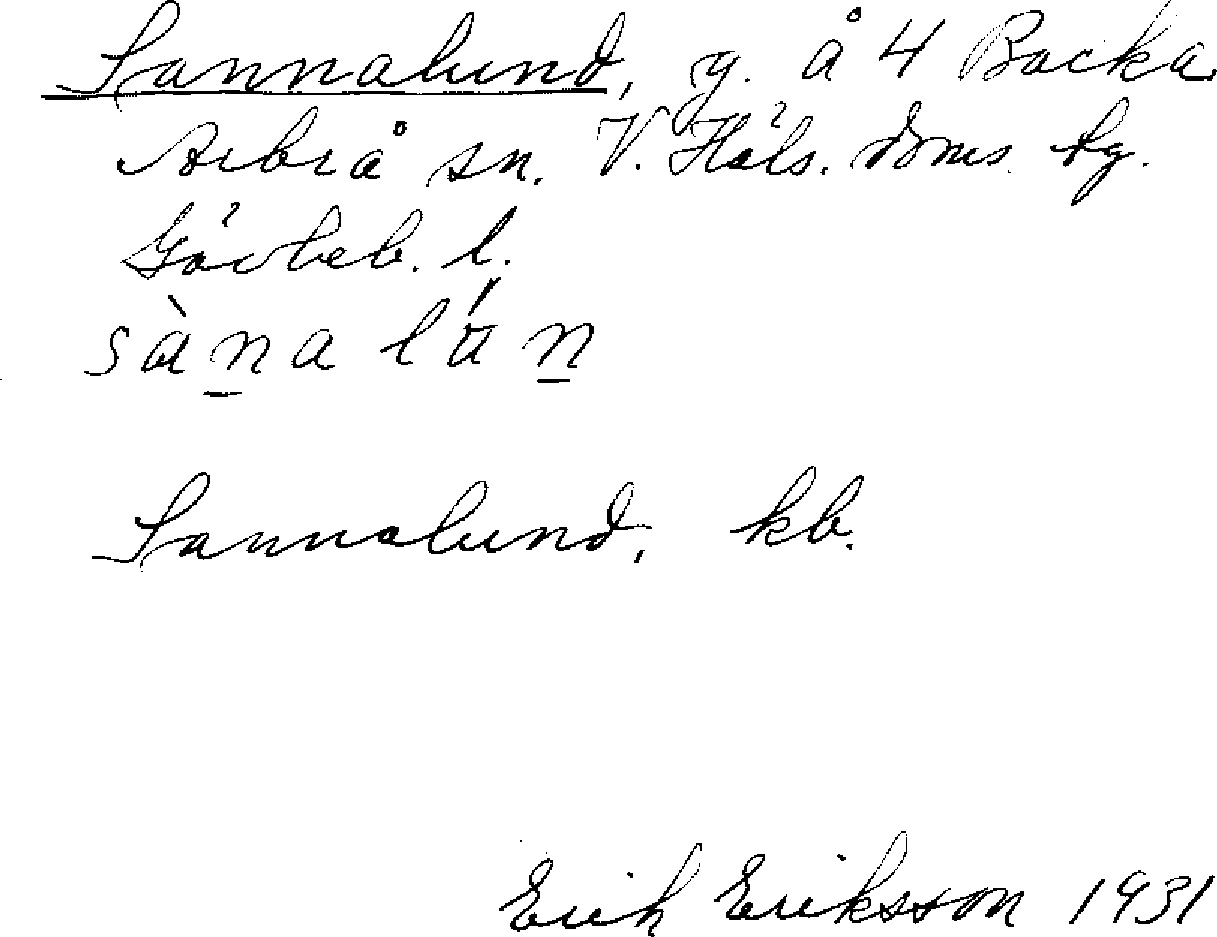 Sannalund, g. å 4 Backa
Arbrå sn. V. Häls. doms. fg.
Gävleb. l.
sànalún
Sannalund, kb.
Erik Eriksson 1931